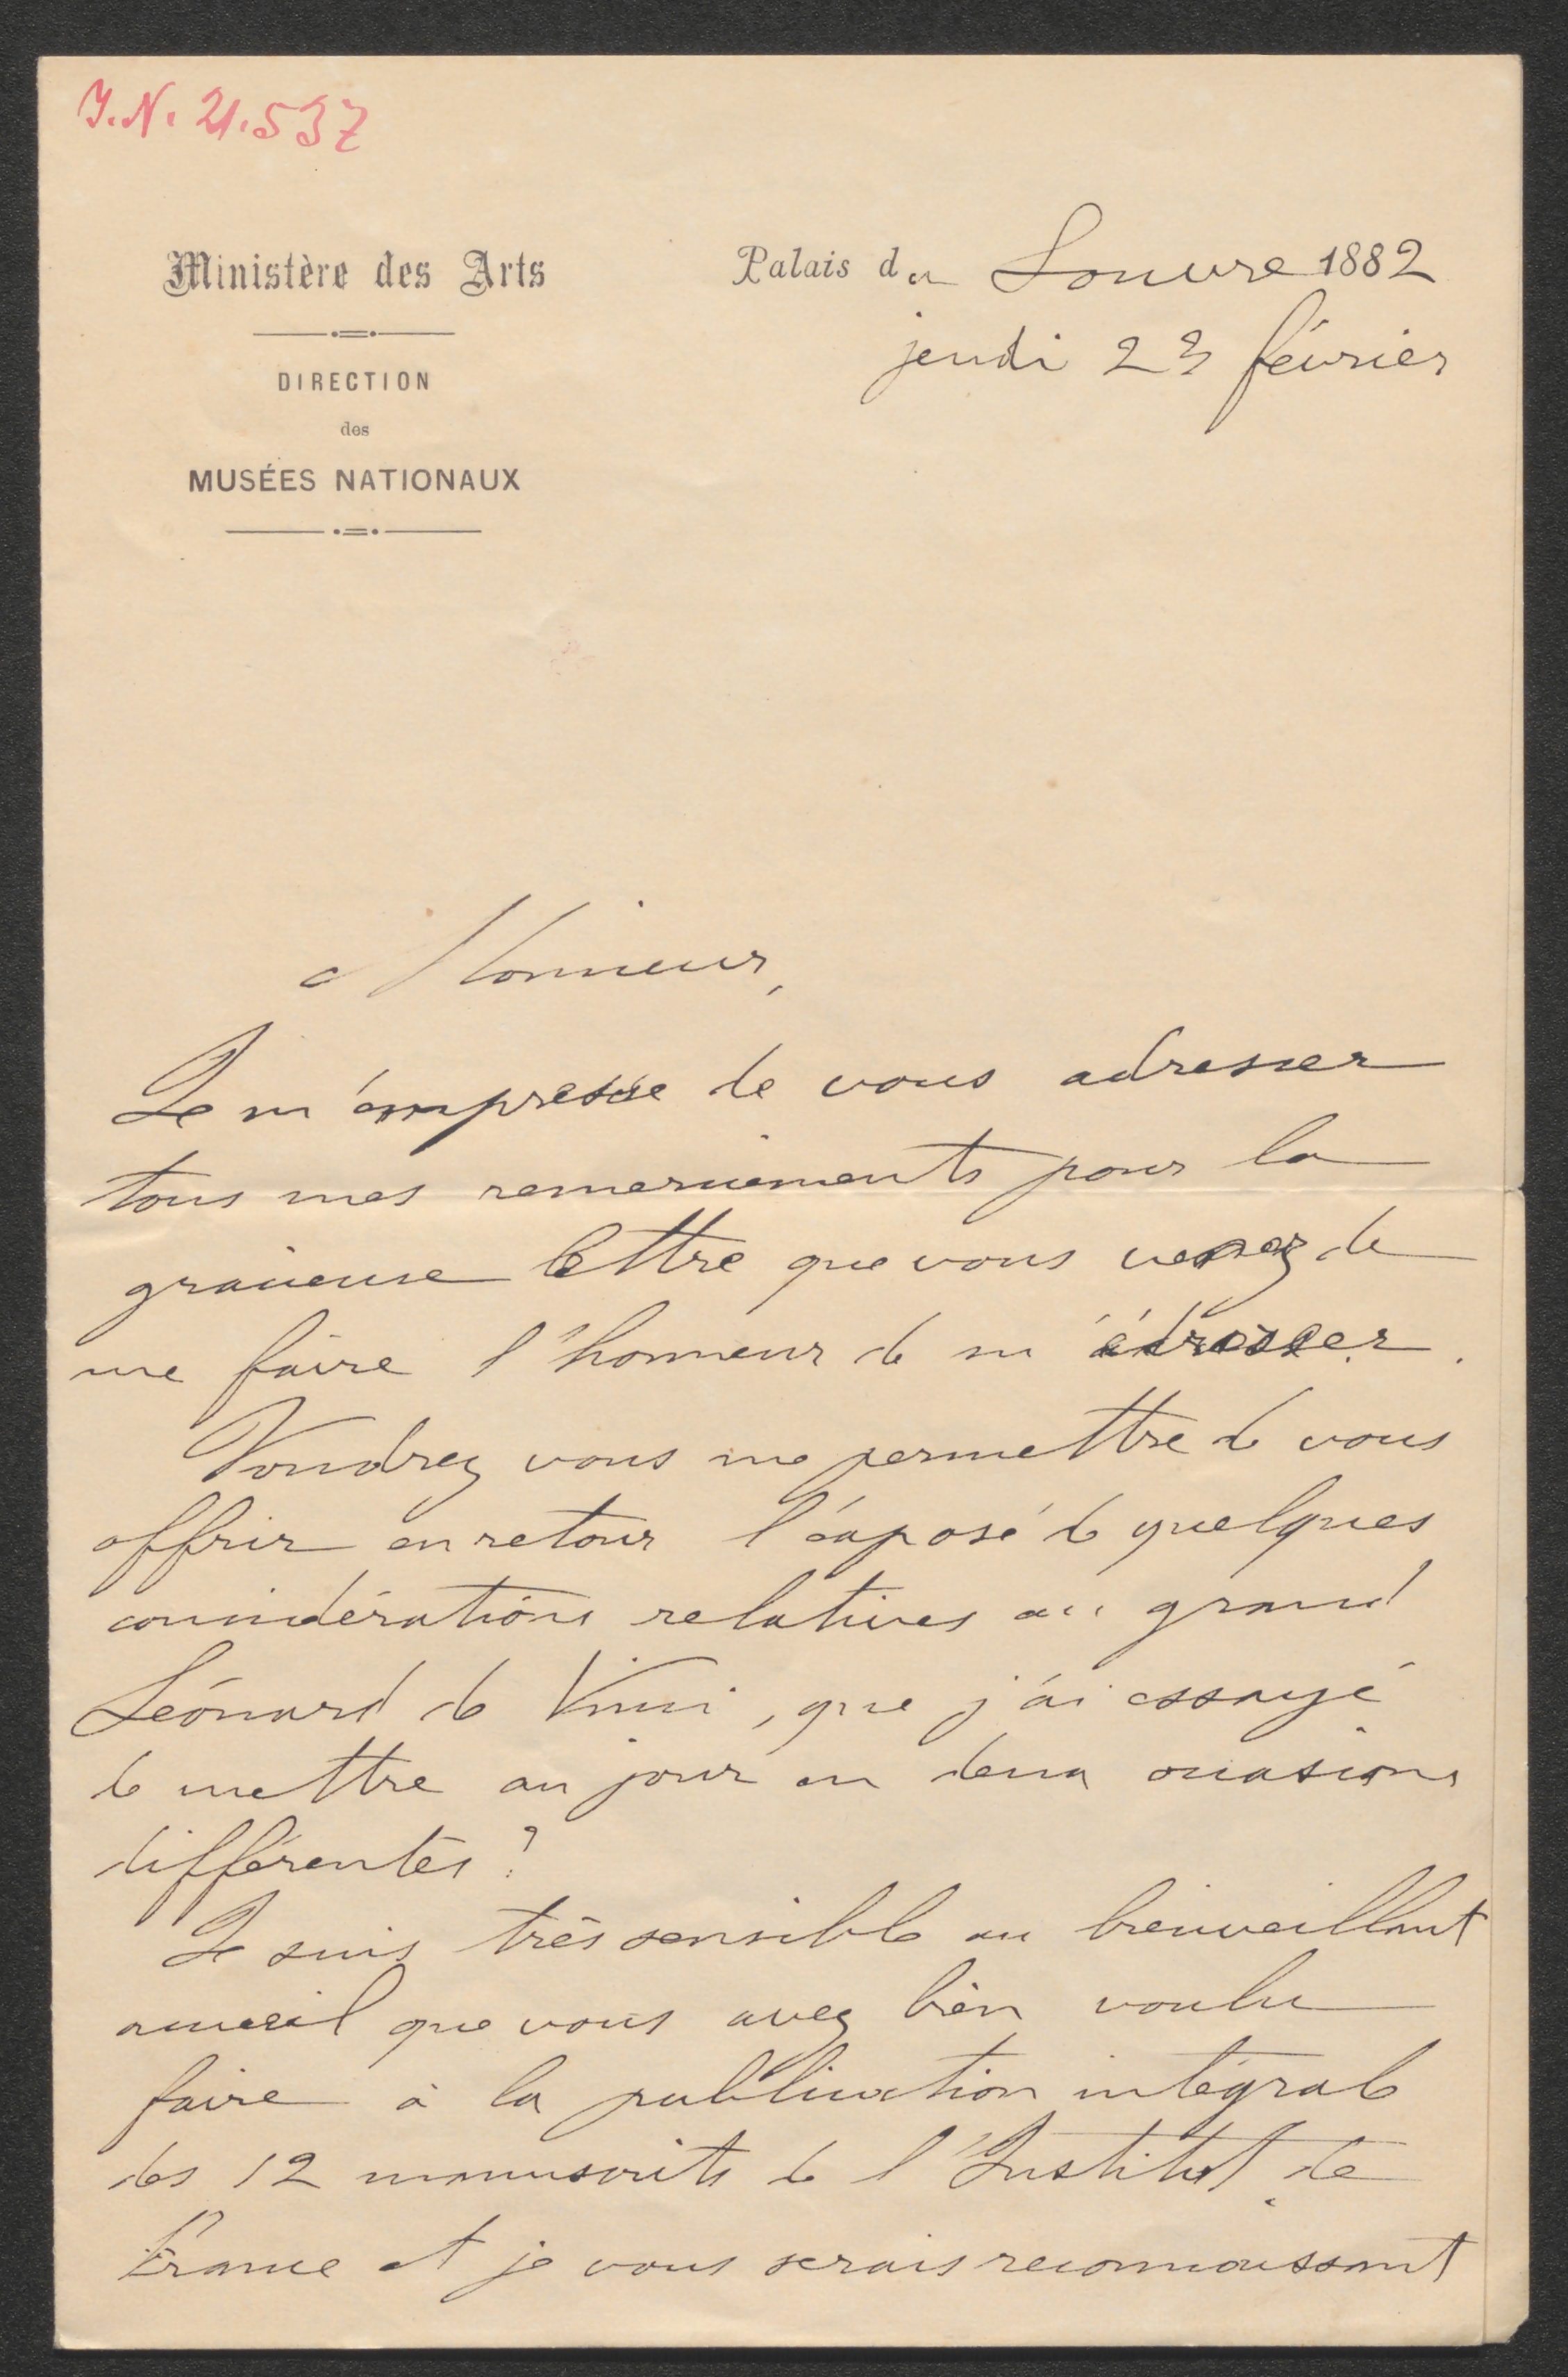 I.N. 21.537
Ministère des Arts
DIRECTION
des
MUSÉES NATIONAUX
Palais du Louvre 1882
jeudi 23 février
Monsieur,
Je m'empresse de vous adresser
tous mes remerciements pour la
gracieuse lettre que vous venez de
me faire l'honneur de m'adresser.
Voudrez vous me permettre de vous
offrir en retour l'exposé de quelques
considérations relatives au grand
Léonard de Vinci, que j'ai essayé
de mettre au jour en deux occasions
différentes?
Je suis très sensible au bienveillant
accueil que vous avez bien voulu
faire à la publication intégrale
des 12 manuscrits de l'Institut de
France et je vous serais reconnaissant